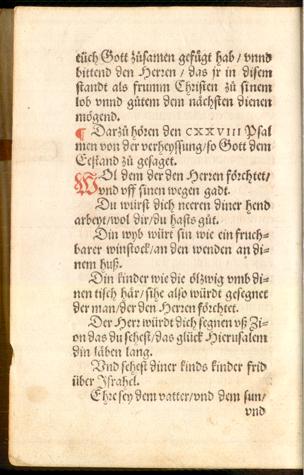 eüch Gott zůsamen gefügt hab / vnnd
bittend den Herren / das jr in disem
standt als frumm Christen zů sinem
lob vnnd gůtem dem nächsten dienen
mögend.
¶ Darzů hören den CXXVIII Psal
men von der verheyssung / so Gott dem
Eestand zů gesaget.
WOl dem der den Herren förchtet /
vnd vff sinen wegen gadt.
Du würst dich neeren diner hend
arbeyt / wol dir / du hasts gůt.
Din wyb würt sin wie ein fruch⸗
barer winstock / an den wenden an di⸗
nem huß.
Din kinder wie die ölzwig vmb di⸗
nen tisch här / sihe also würdt gesegnet
der man / der den Herren förchtet.
Der Herr würdt dich segnen vß Zi⸗
on das du sehest / das glück Hierusalem
din läben lang.
Vnd sehest diner kinds kinder frid
über Israhel.
Ehre sey dem vatter / vnd dem sun /
vnd